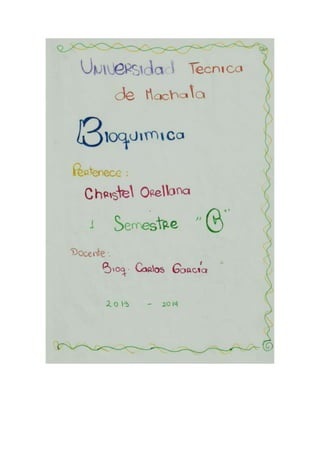 Universidad Tecnica
de Machala
Bioquimica
Pertenece:
Christel Orellana
1 Semestre "B"
Docente:
Bioq. Carlos García
2013 - 2014